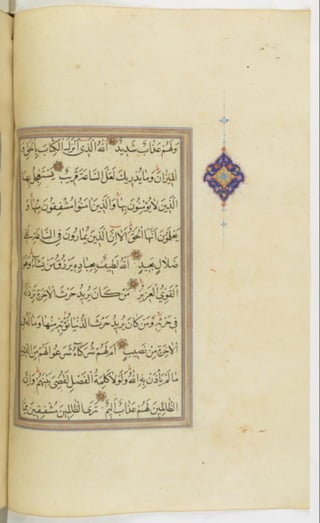 وَلَهُمْ عَذَابٌ شَدِيدٌ اللَّهُ الَّذِي أَنْزَلَ الْكِتَابَ بِالْحَقِّ وَ
الْمِيزَانَ وَمَا يُدْرِيكَ لَعَلَّ السَّاعَةَ قَرِيبٌ يَسْتَعْجِلُ بِهَا
الَّذِينَ لَا يُؤْمِنُونَ بِهَا وَالَّذِينَ آمَنُوا مُشْفِقُونَ مِنْهَا وَ
يَعْلَمُونَ أَنَّهَا الْحَقُّ أَلَا إِنَّ الَّذِينَ يُمَارُونَ فِي السَّاعَةِ لَفِي
ضَلَالٍ بَعِيدٍ اللَّهُ لَطِيفٌ بِعِبَادِهِ يَرْزُقُ مَنْ يَشَاءُ وَهُوَ
الْقَوِيُّ الْعَزِيزُ مَنْ كَانَ يُرِيدُ حَرْثَ الْآخِرَةِ نَزِدْ لَهُ
فِي حَرْثِهِ وَمَنْ كَانَ يُرِيدُ حَرْثَ الدُّنْيَا نُؤْتِهِ مِنْهَا وَمَا لَهُ فِي
الْآخِرَةِ مِنْ نَصِيبٍ أَمْ لَهُمْ شُرَكَاءُ شَرَعُوا لَهُمْ مِنَ الدِّينِ
مَا لَمْ يَأْذَنْ بِهِ اللَّهُ وَلَوْلَا كَلِمَةُ الْفَصْلِ لَقُضِيَ بَيْنَهُمْ وَإِنَّ
الظَّالِمِينَ لَهُمْ عَذَابٌ أَلِيمٌ تَرَى الظَّالِمِينَ مُشْفِقِينَ مِمَّا